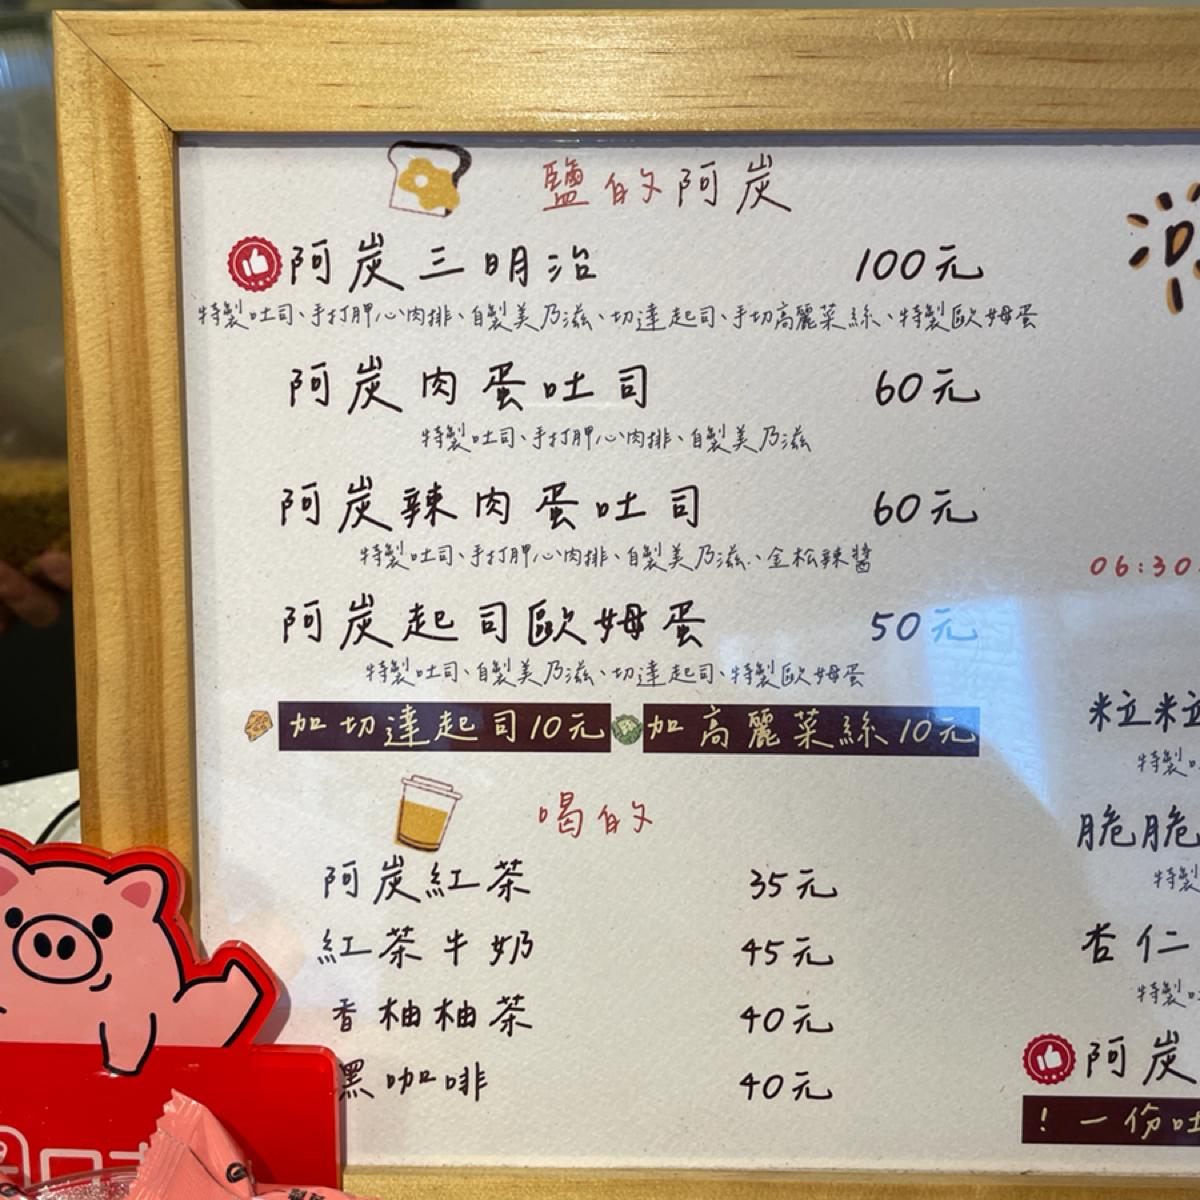 鹽的阿炭
阿炭三明治 100元
特製吐司、手打胛心肉排、自製美乃滋、切達起司、手切高麗菜絲、特製歐姆蛋
阿炭肉蛋吐司 60元
特製吐司、手打胛心肉排、自製美乃滋
阿炭辣肉蛋吐司 60元
特製吐司、手打胛心肉排、自製美乃滋、金松辣醬
阿炭起司歐姆蛋 50元
特製吐司、自製美乃滋、切達起司、特製歐姆蛋
加切達起司10元 加高麗菜絲10元
喝的
阿炭紅茶 35元
紅茶牛奶 45元
香柚柚茶 40元
黑咖啡 40元
06:30
粒粒
特製
脆脆
特製
杏仁
特製
阿炭
！一份吐